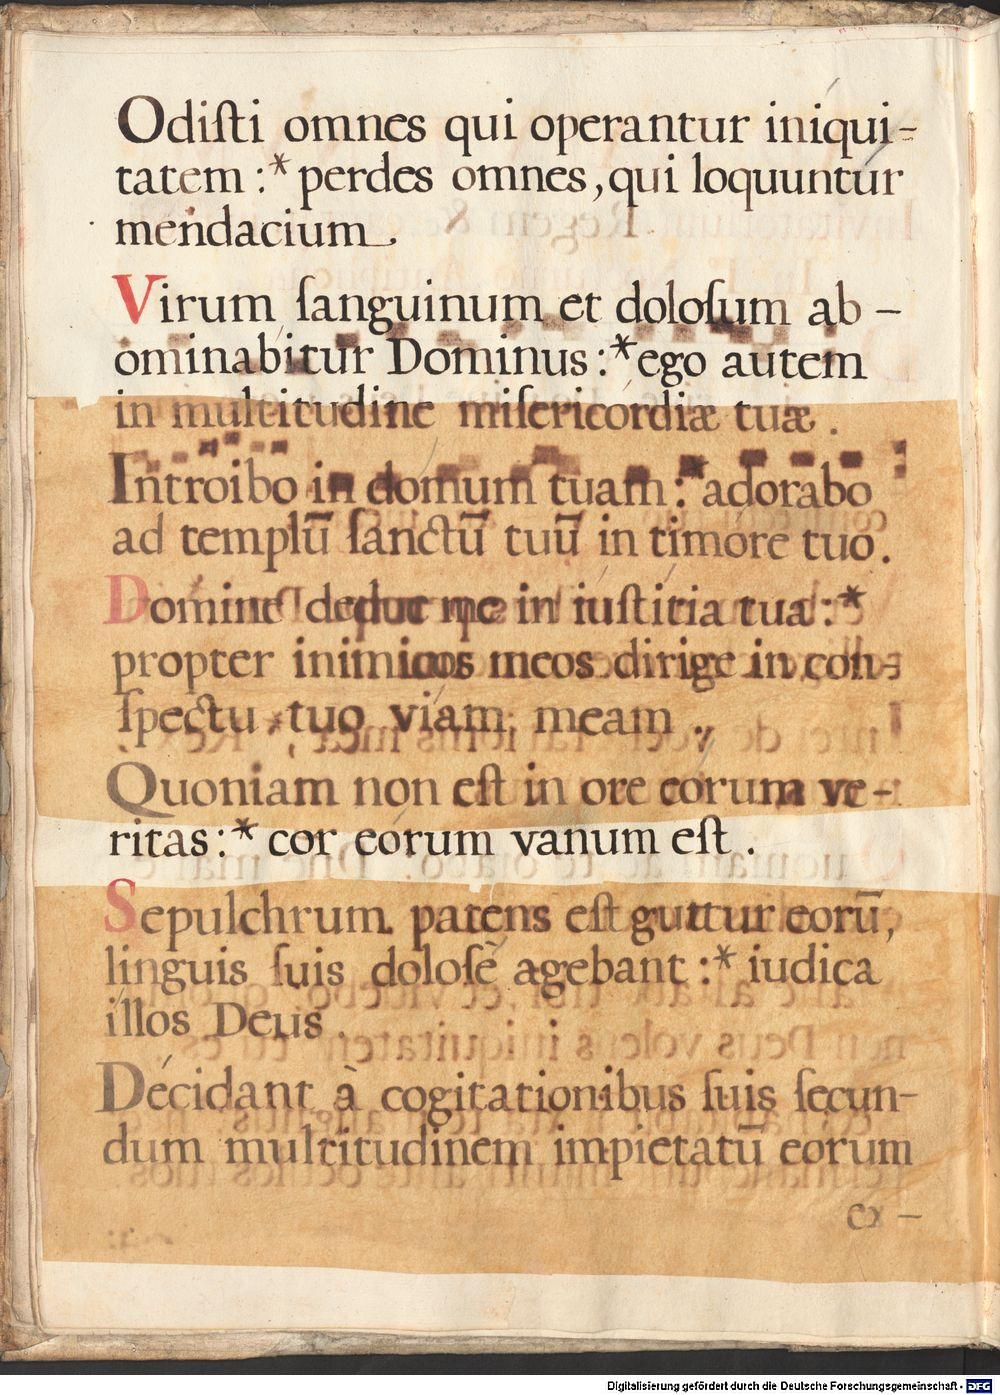 Odiſti omnes qui operantur iniqui-
tatem :* perdes omnes, qui loquuntur
mendacium.
Virum ſanguinum et doloſum ab-
ominabitur Dominus :* ego autem
in multitudine miſericórdiæ tuæ.
Introibo in domum tuam :* adorabo
ad templū ſanctū tuū in timore tuo.
Domine deduc me in iuſtitia tua :*
propter inimicos meos dirige in con-
ſpectu tuo viam meam.
Quoniam non eſt in ore eorum ve-
ritas :* cor eórum vanum eſt.
Sepulchrum patens eſt guttur eorū,
linguis ſuis doloſè agebant :* iudica
illos Deus.
Décidant à cogitationibus ſuis ſecun-
dum multitudinem impietatū eorum
ex-
Digitalisierung gefördert durch die Deutsche Forschungsgemeinschaft - DFG